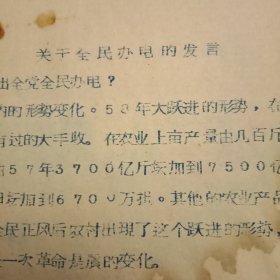 关于全民办电的发言
出全党全民办电?
内的形势变化。58年大跃进的形势,在
有过的大丰收。在农业上亩产量由几百斤
57年3700亿斤增加到7500亿
增加到6700万担。其他的农业产品
全民正风后农村出现了这个跃进的形势,
一次革命是质的变化。